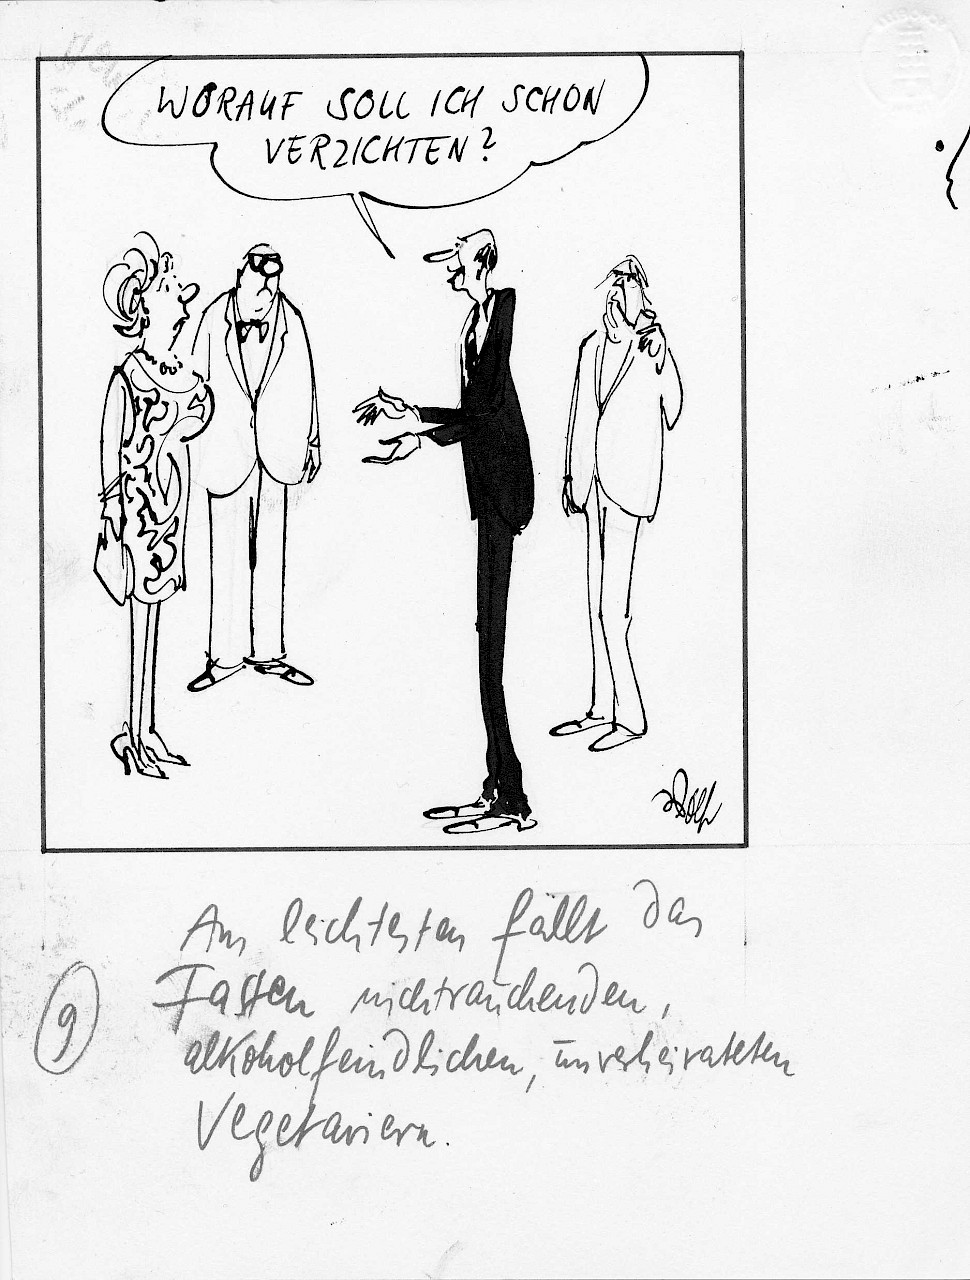 WORAUF SOLL ICH SCHON
VERZICHTEN?
Wolf
Am leichtesten fällt das
Fasten nichtrauchenden,
alkoholfeindlichen, unverheirateten
Vegetariern.
9